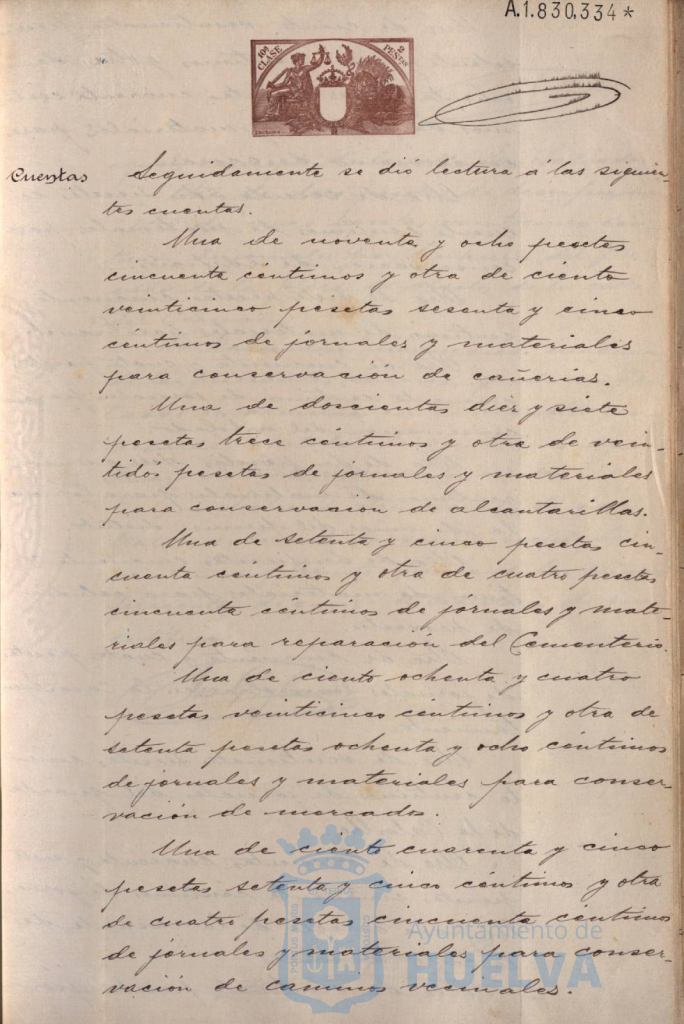 A.1.830,334*
10ª CLASE
2 PESTAS
Cuentas
Seguidamente se dió lectura á las siguien-
tes cuentas.
Una de noventa y ocho pesetas
cincuenta céntimos y otra de ciento
veinticinco pesetas sesenta y cinco
céntimos de jornales y materiales
para conservación de cañerías.
Una de doscientas diez y siete
pesetas trece céntimos y otra de vein-
tidós pesetas de jornales y materiales
para conservación de alcantarillas.
Una de setenta y cinco pesetas cin-
cuenta céntimos y otra de cuatro pesetas
cincuenta céntimos de jornales y mate-
riales para reparación del Cementerio.
Una de ciento ochenta y cuatro
pesetas veinticinco céntimos y otra de
setenta pesetas ochenta y ocho céntimos
de jornales y materiales para conser-
vación de mercados.
Una de ciento cuarenta y cinco
pesetas setenta y cinco céntimos y otra
de cuatro pesetas cincuenta céntimos
de jornales y materiales para conser-
vación de caminos vecinales.
Ayuntamiento de
HUELVA